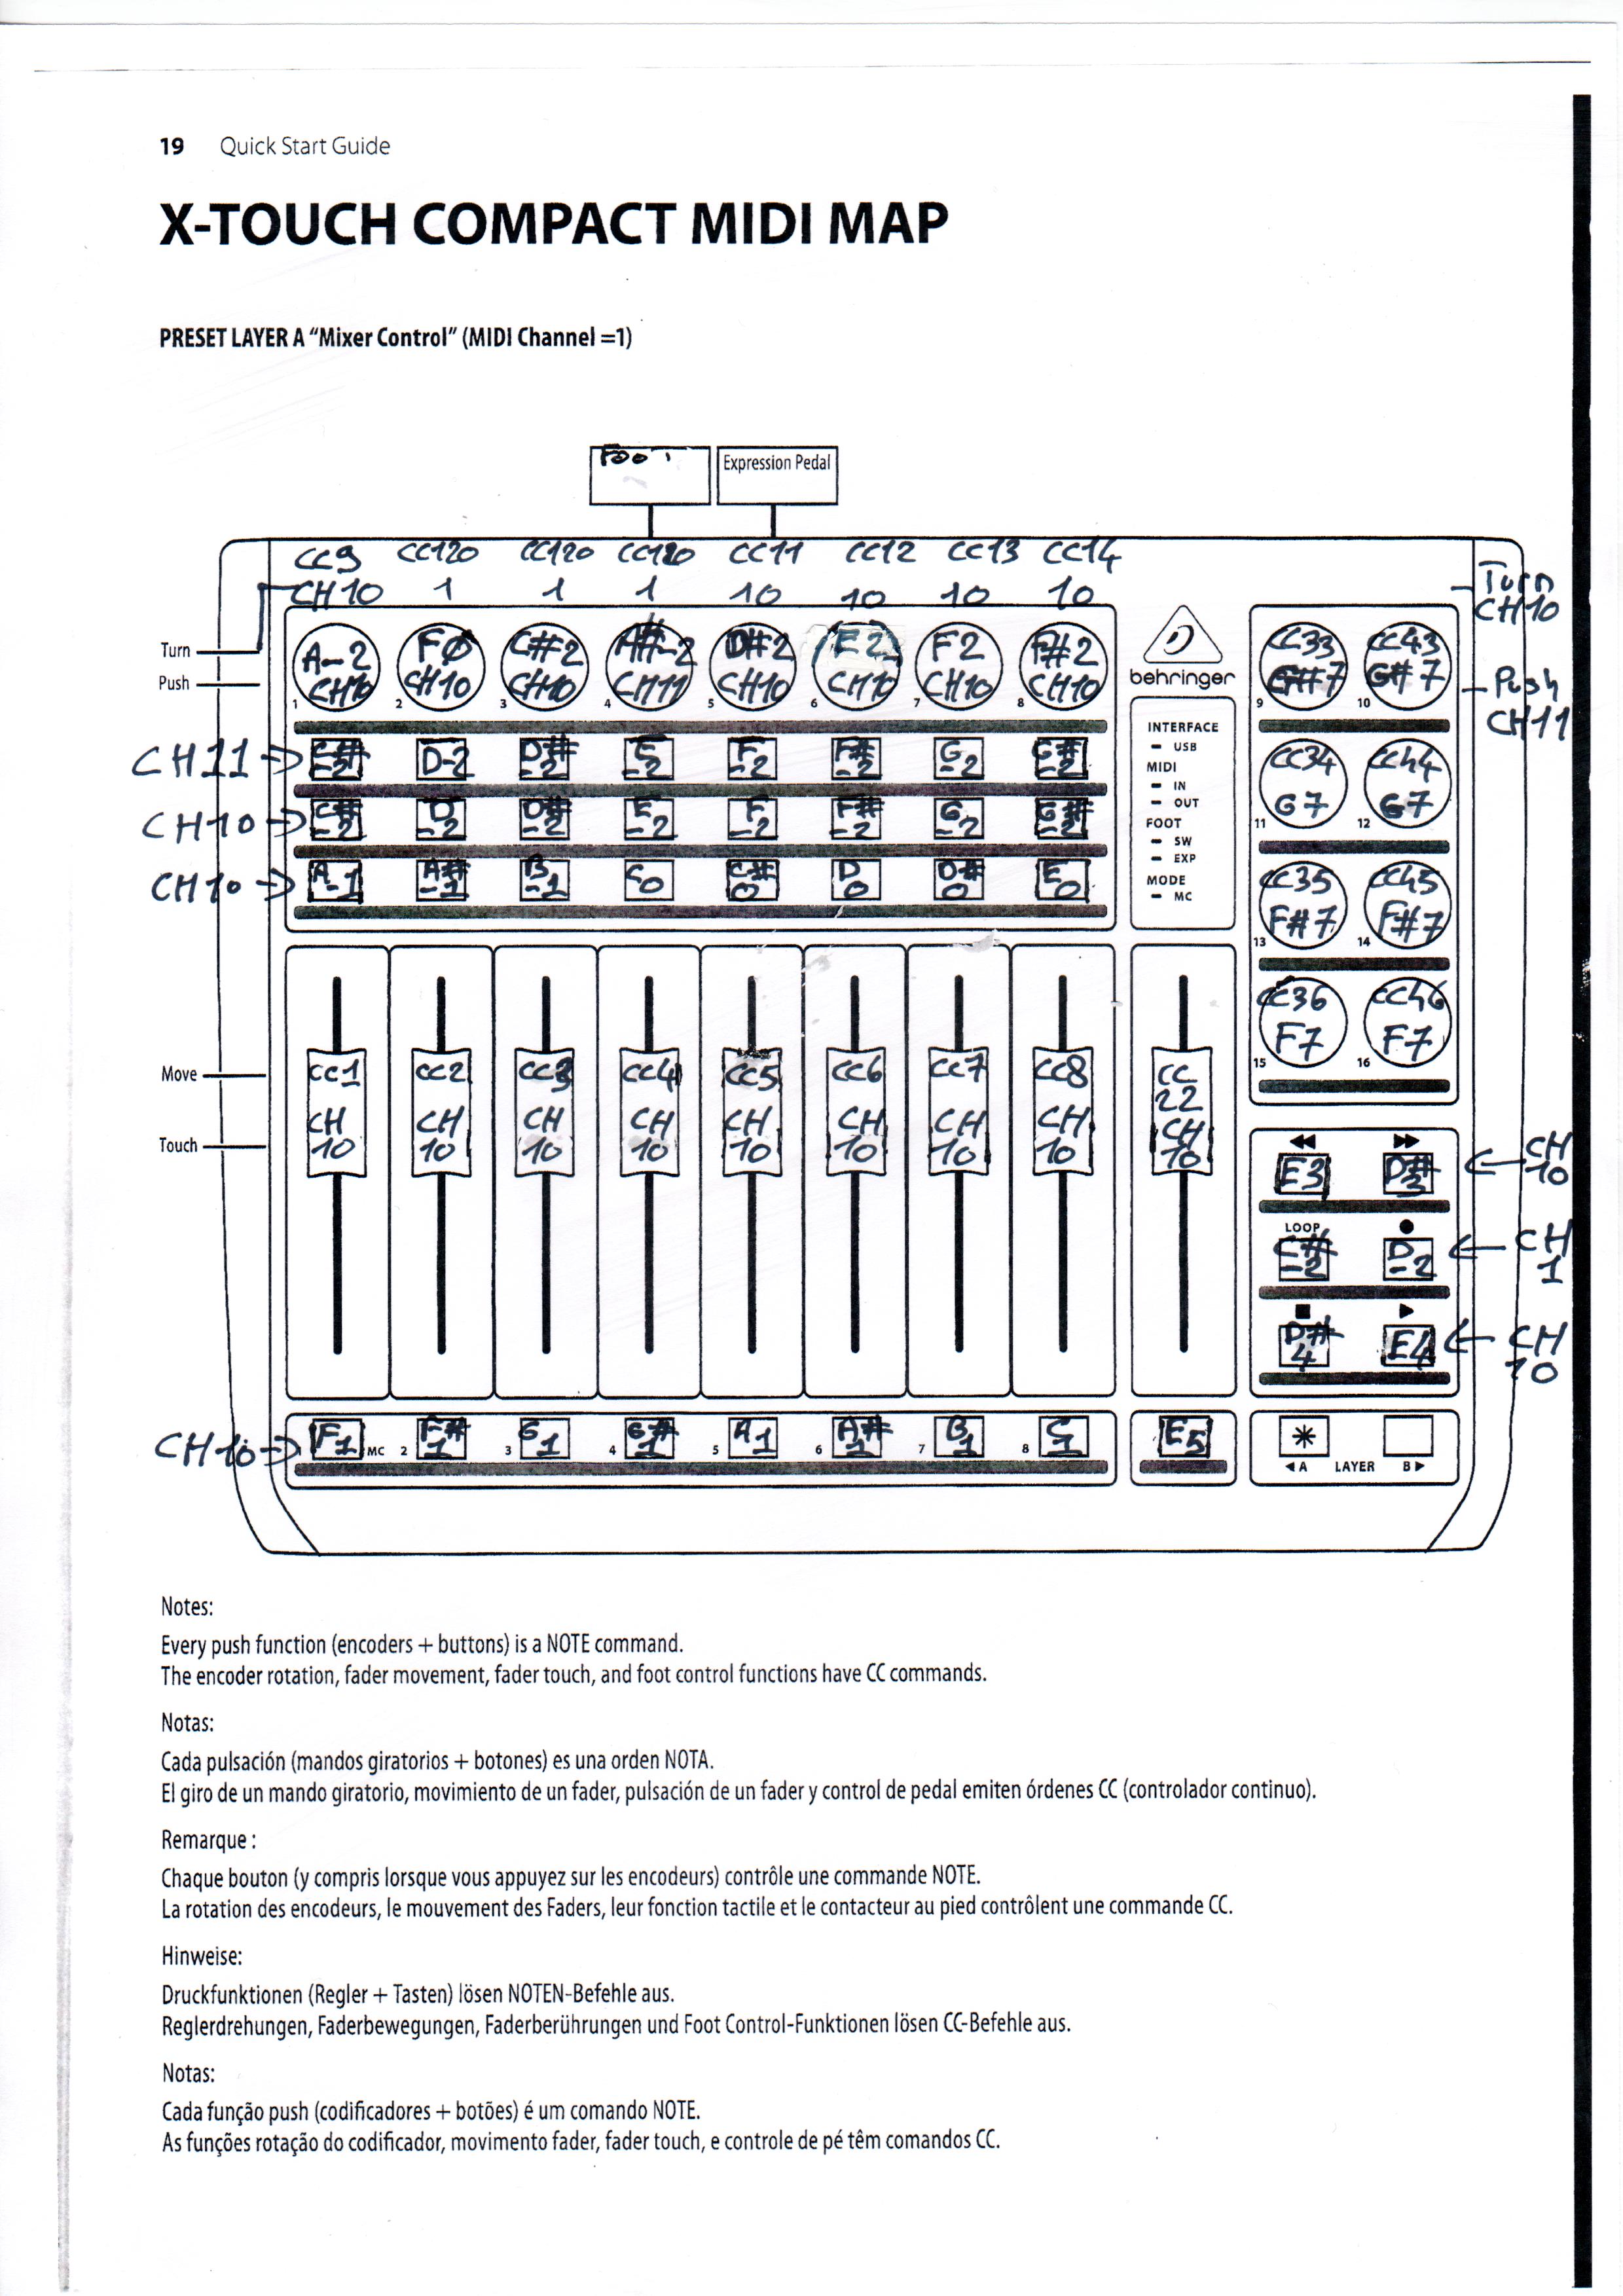 19 Quick Start Guide
X-TOUCH COMPACT MIDI MAP
PRESET LAYER A “Mixer Control” (MIDI Channel =1)
Foot Expression Pedal
CC9 CC120 CC120 CC120 CC11 CC12 CC13 CC14
CH10 1 1 1 10 10 10 10
Turn
CH10
Turn
Push
A-2 F0 C#2 A#-2 D#2 E2 F2 F#2
CH10 CH10 CH10 CH11 CH10 CH10 CH10 CH10
1 2 3 4 5 6 7 8
behringer
CC33 CC43
G#7 G#7
9 10
Push
CH11
CH11 C#-2 D-2 D#-2 E-2 F-2 F#-2 G-2 G#-2
CH10 C#-2 D-2 D#-2 E-2 F-2 F#-2 G-2 G#-2
CH10 A-1 A#-1 B-1 C0 C#0 D0 D#0 E0
INTERFACE
USB
MIDI
IN
OUT
FOOT
SW
EXP
MODE
MC
CC34 CC44
G7 G7
11 12
CC35 CC45
F#7 F#7
13 14
CC36 CC46
F7 F7
15 16
Move
Touch
CC1 CC2 CC3 CC4 CC5 CC6 CC7 CC8 CC22
CH10 CH10 CH10 CH10 CH10 CH10 CH10 CH10 CH10
E3 D#3 CH10
LOOP
C#-2 D-2 CH1
D#4 E4 CH10
CH10 F1 MC 2 F#1 3 G1 4 G#1 5 A1 6 A#1 7 B1 8 C1 E5
A LAYER B
Notes:
Every push function (encoders + buttons) is a NOTE command.
The encoder rotation, fader movement, fader touch, and foot control functions have CC commands.
Notas:
Cada pulsación (mandos giratorios + botones) es una orden NOTA.
El giro de un mando giratorio, movimiento de un fader, pulsación de un fader y control de pedal emiten órdenes CC (controlador continuo).
Remarque :
Chaque bouton (y compris lorsque vous appuyez sur les encodeurs) contrôle une commande NOTE.
La rotation des encodeurs, le mouvement des Faders, leur fonction tactile et le contacteur au pied contrôlent une commande CC.
Hinweise:
Druckfunktionen (Regler + Tasten) lösen NOTEN-Befehle aus.
Reglerdrehungen, Faderbewegungen, Faderberührungen und Foot Control-Funktionen lösen CC-Befehle aus.
Notas:
Cada função push (codificadores + botões) é um comando NOTE.
As funções rotação do codificador, movimento fader, fader touch, e controle de pé têm comandos CC.